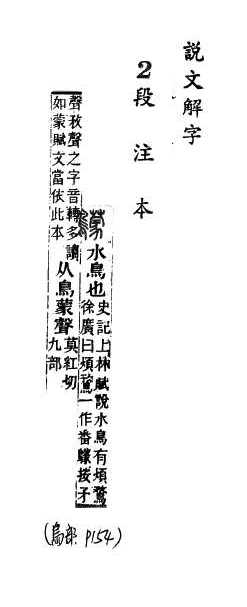 説文解字
2段注本
鸏 水鳥也
史記上林賦說水鳥有煩鶩
徐廣曰煩鶩一作番鸏按矛
聲敄聲之字音轉多讀
如蒙賦文當依此本
从鳥蒙聲
莫紅切
九部
(鳥部 P154)